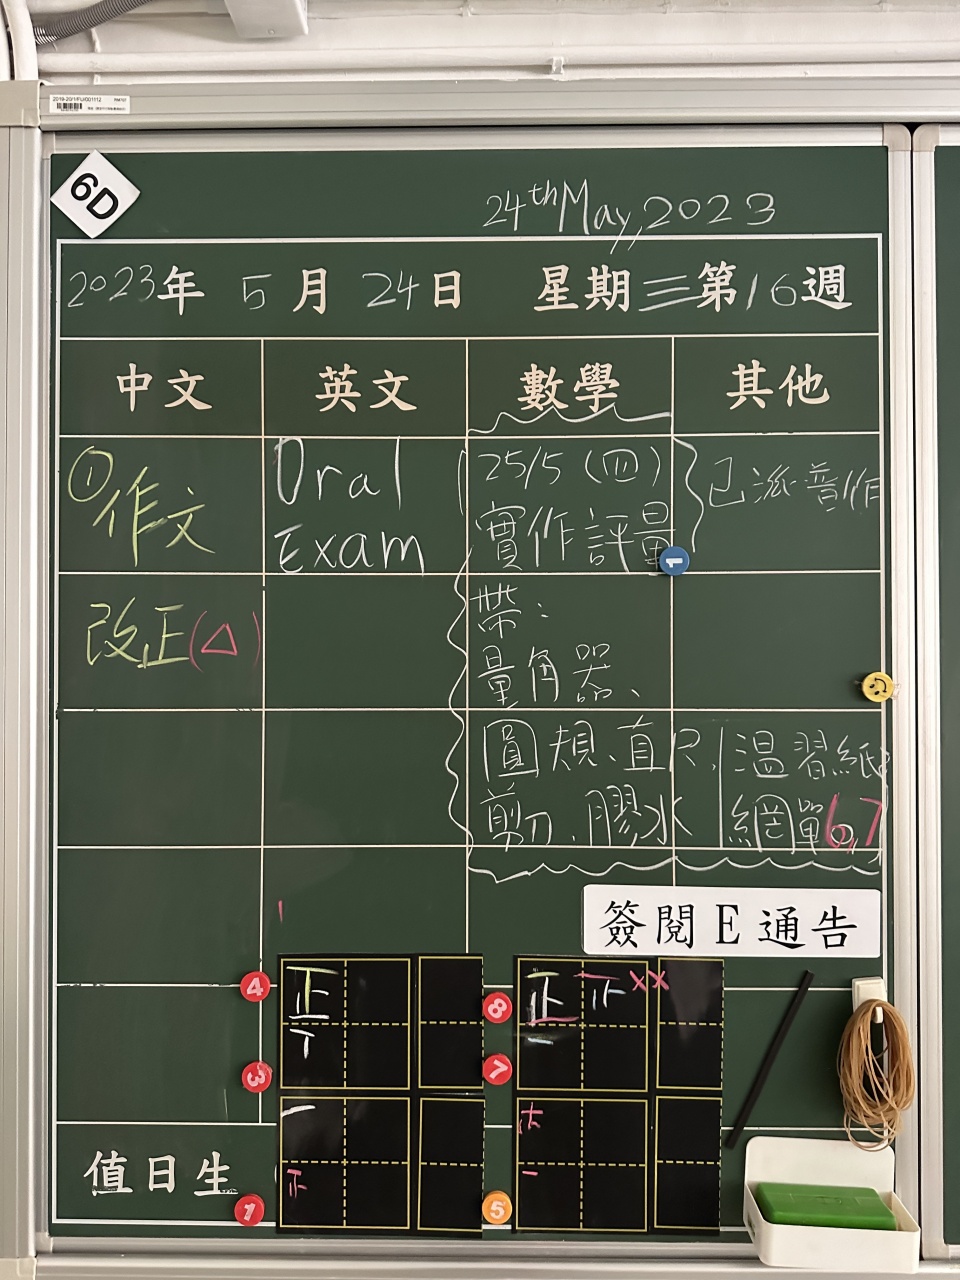 2019-20/1/FU/001112
6D
24th May, 2023
2023年 5月 24日 星期三第16週
中文 英文 數學 其他
① 作文
改正(△)
Oral
Exam
25/5 (四)
實作評量
帶：
量角器、
圓規、直尺,
剪刀、膠水
已派普作
溫習紙
網單6,7
1
簽閱E通告
4
正
8
正
xx
3
7
值日生
1
5